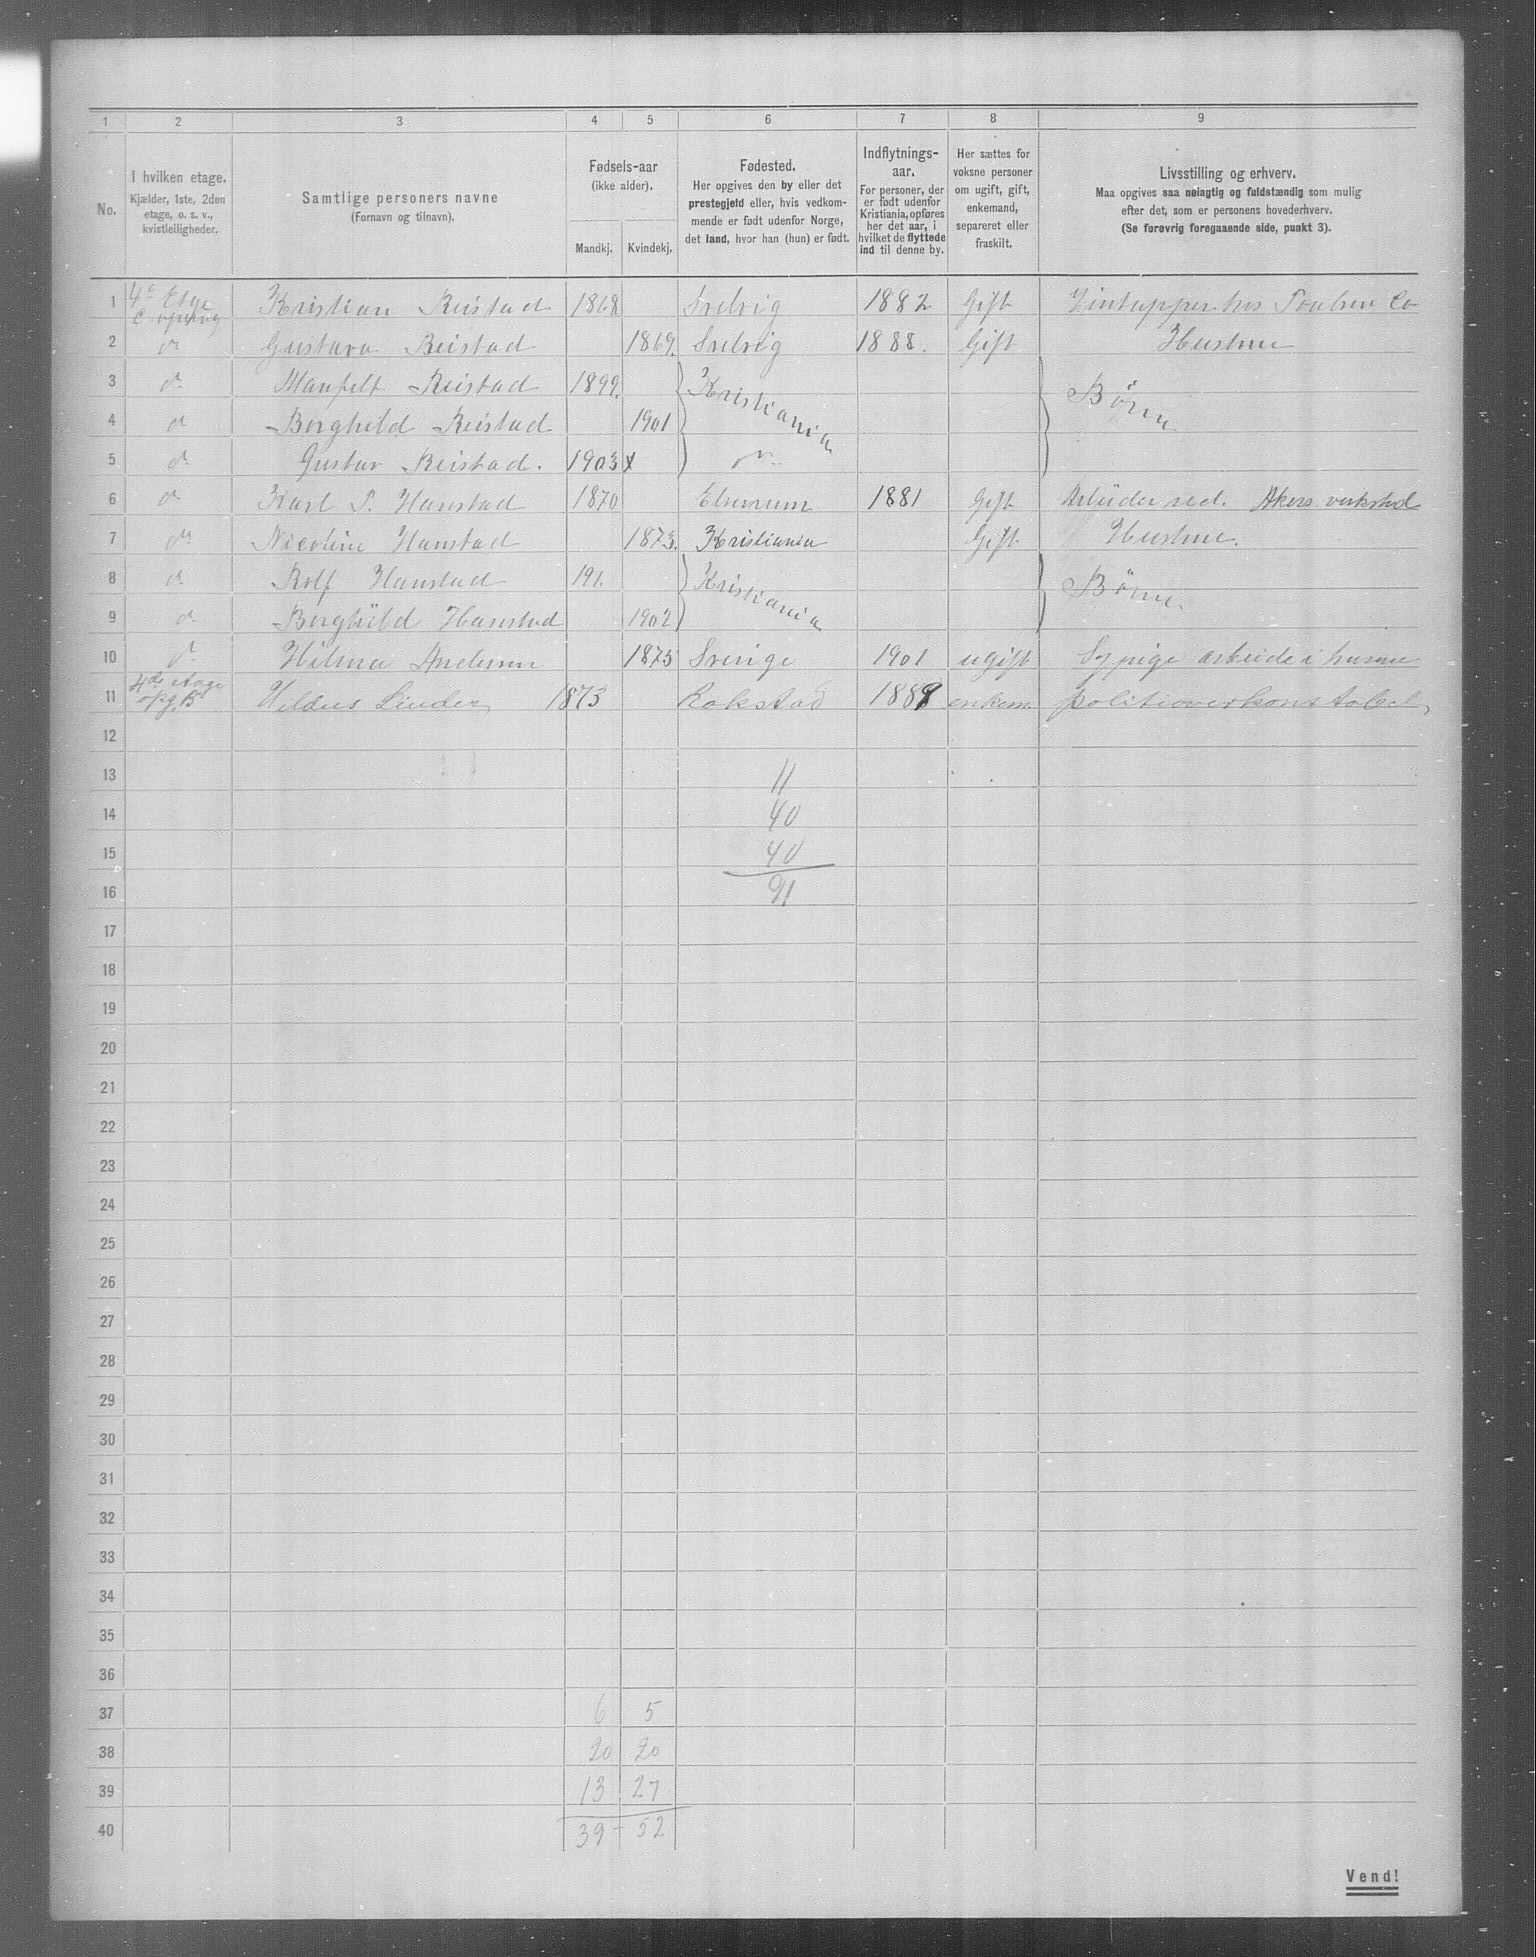 1 2 3 4 5 6 7 8 9
No.
I hvilken etage.
Kjælder, 1ste, 2den
etage, o. s. v.,
kvistleiligheder.
Samtlige personers navne
(Fornavn og tilnavn).
Fødsels-aar
(ikke alder).
Mandkj. Kvindekj.
Fødested.
Her opgives den by eller det
prestegjeld eller, hvis vedkom-
mende er født udenfor Norge,
det land, hvor han (hun) er født.
Indflytnings-
aar.
For personer, der
er født udenfor
Kristiania, opføres
her det aar, i
hvilket de flyttede
ind til denne by.
Her sættes for
voksne personer
om ugift, gift,
enkemand,
separeret eller
fraskilt.
Livsstilling og erhverv.
Maa opgives saa nøiagtig og fuldstændig som mulig
efter det, som er personens hovederhverv.
(Se forøvrig foregaaende side, punkt 3).
1 4e Etge C Kristian Reistad 1868 Svelvig 1882 Gift hos Co
2 do Gustava Reistad 1869. Svelvig 1888. Gift Hustru
3 do Reistad 1899. Kristiania Børn
4 do Borghild Reistad 1901
5 do Gustav Reistad. 1903 x do
6 do Karl P. Hanstad 1870 Elverum 1881 Gift Arbeider ved. Akers verksted
7 do Nicoline Hanstad 1873. Kristiania Gift Hustru.
8 do Rolf Hanstad 191. Kristiania Børn.
9 do Borghild Hanstad 1902
10 do Hilma Andersen 1875 Sverige 1901 ugift Sypige arbeide i huset
11 4de etage opg. B Linder 1873 Rakstad 1889 enkem. politioverkonstabel
12
13 11
14 40
15 40
16 91
17
18
19
20
21
22
23
24
25
26
27
28
29
30
31
32
33
34
35
36
37 6 5
38 20 20
39 13 27
40 39 - 52
Vend!